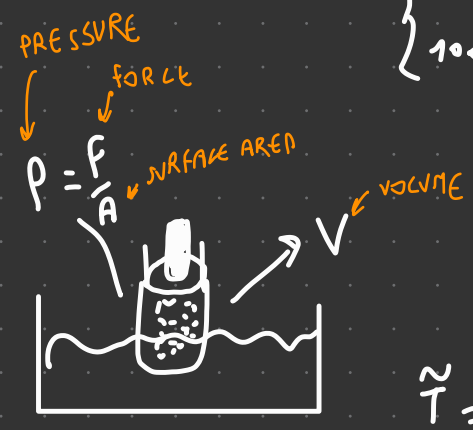 PRESSURE
FORCE
P = F/A
SURFACE AREA
VOLUME
V
T̃ =